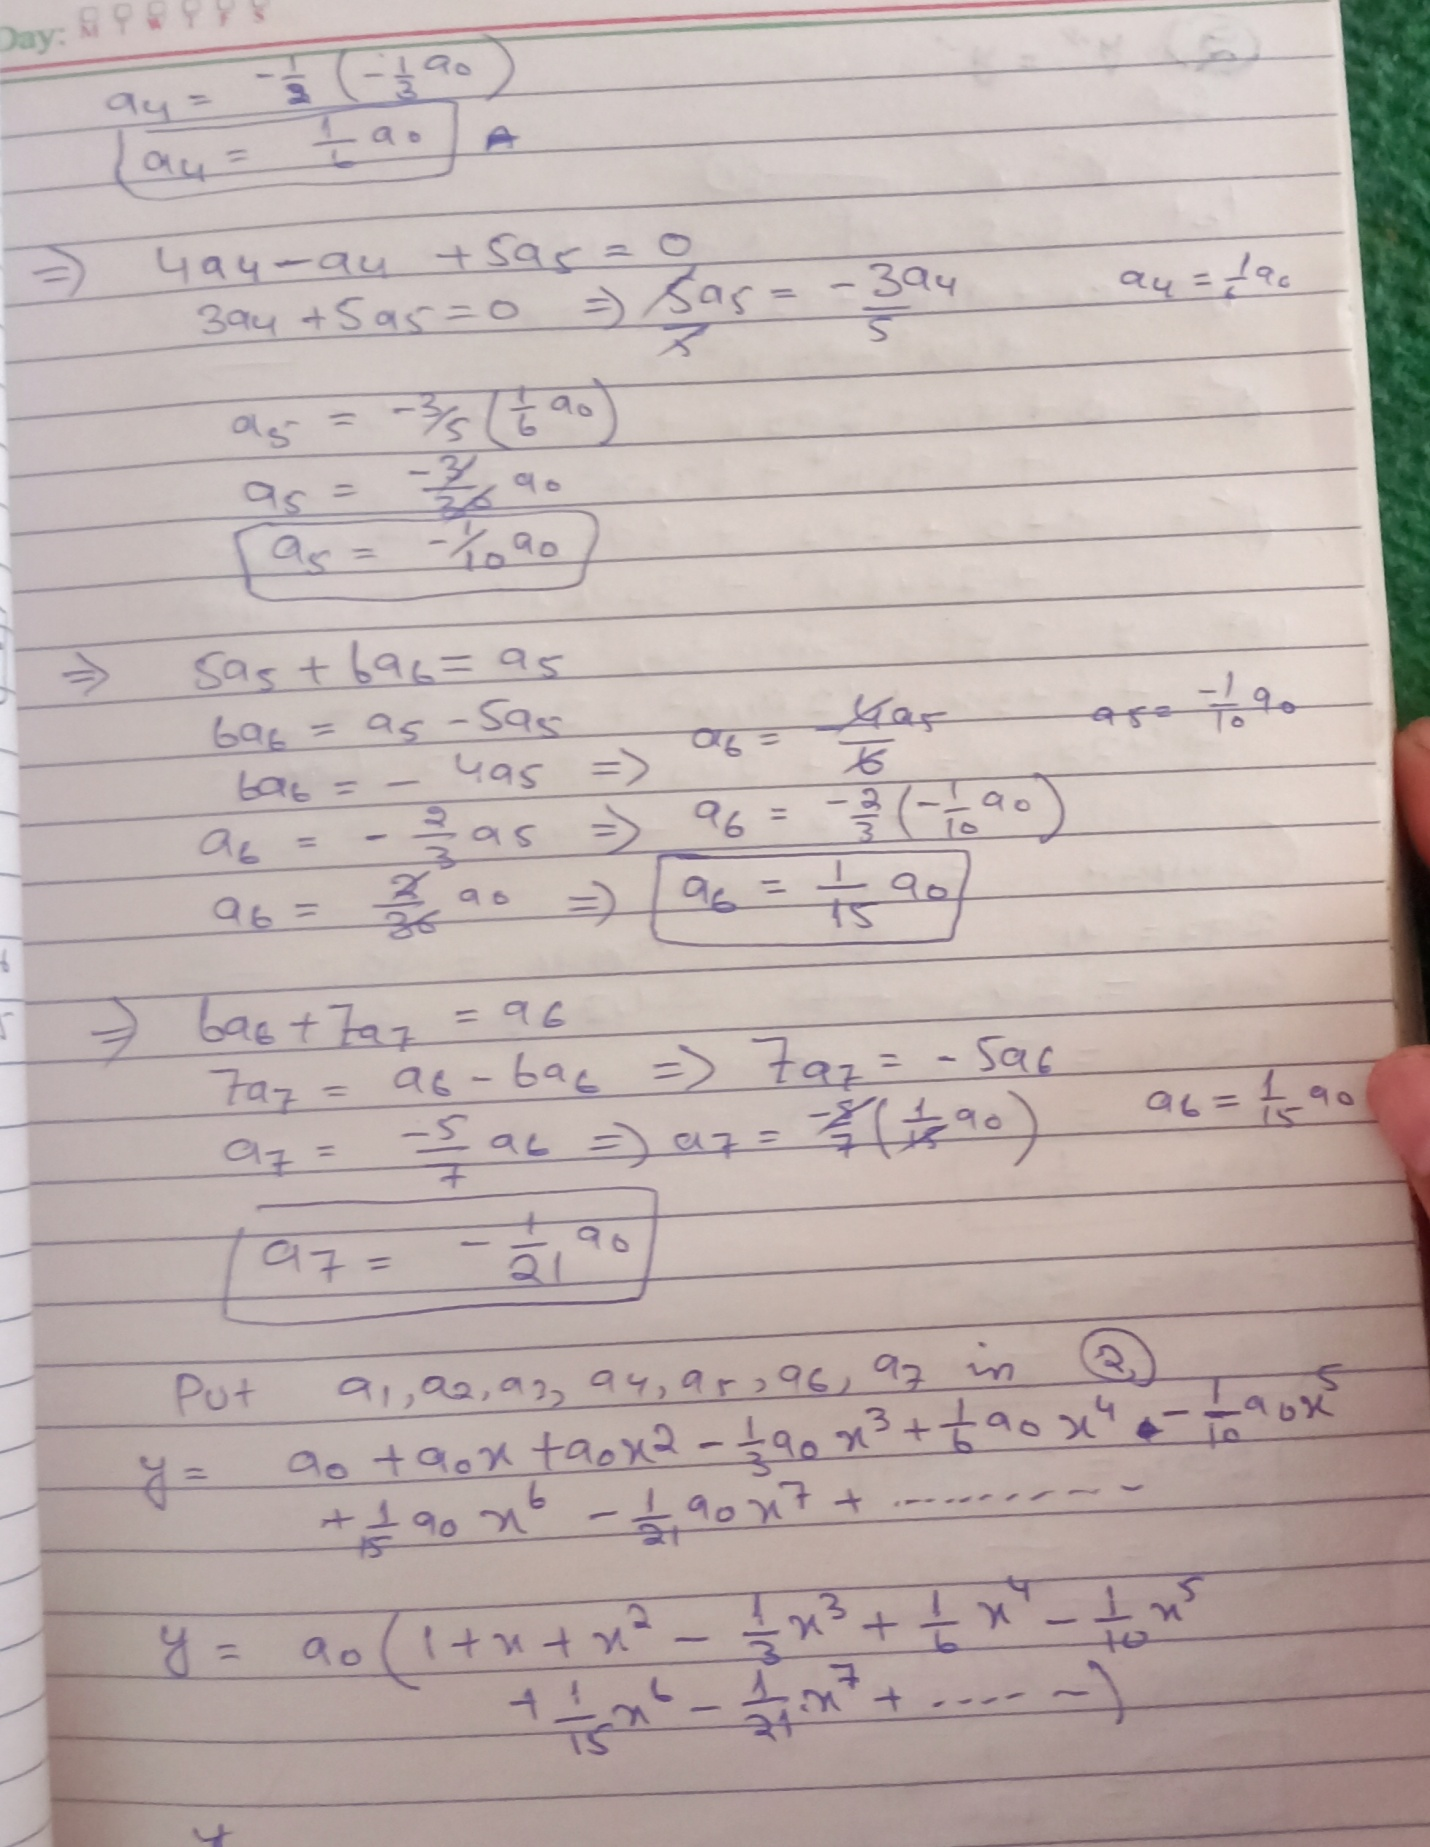 Day: M T W T F S
a₄ = -1/2 (-1/3 a₀)
a₄ = 1/6 a₀
⇒ 4a₄ - a₄ + 5a₅ = 0
3a₄ + 5a₅ = 0 ⇒ 5a₅/5 = -3a₄/5 a₄ = 1/6 a₀
a₅ = -3/5 (1/6 a₀)
a₅ = -3/30 a₀
a₅ = -1/10 a₀
⇒ 5a₅ + 6a₆ = a₅
6a₆ = a₅ - 5a₅ a₆ = -4a₅/6 a₅ = -1/10 a₀
6a₆ = - 4a₅ ⇒
a₆ = - 2/3 a₅ ⇒ a₆ = -2/3 (-1/10 a₀)
a₆ = 2/30 a₀ ⇒ a₆ = 1/15 a₀
⇒ 6a₆ + 7a₇ = a₆
7a₇ = a₆ - 6a₆ ⇒ 7a₇ = - 5a₆
a₇ = -5/7 a₆ ⇒ a₇ = -5/7 (1/15 a₀) a₆ = 1/15 a₀
a₇ = - 1/21 a₀
Put a₁, a₂, a₃, a₄, a₅, a₆, a₇ in ②
y = a₀ + a₀x + a₀x² - 1/3 a₀x³ + 1/6 a₀x⁴ - 1/10 a₀x⁵
+ 1/15 a₀x⁶ - 1/21 a₀x⁷ + ..........
y = a₀ (1 + x + x² - 1/3 x³ + 1/6 x⁴ - 1/10 x⁵
+ 1/15 x⁶ - 1/21 x⁷ + ......)